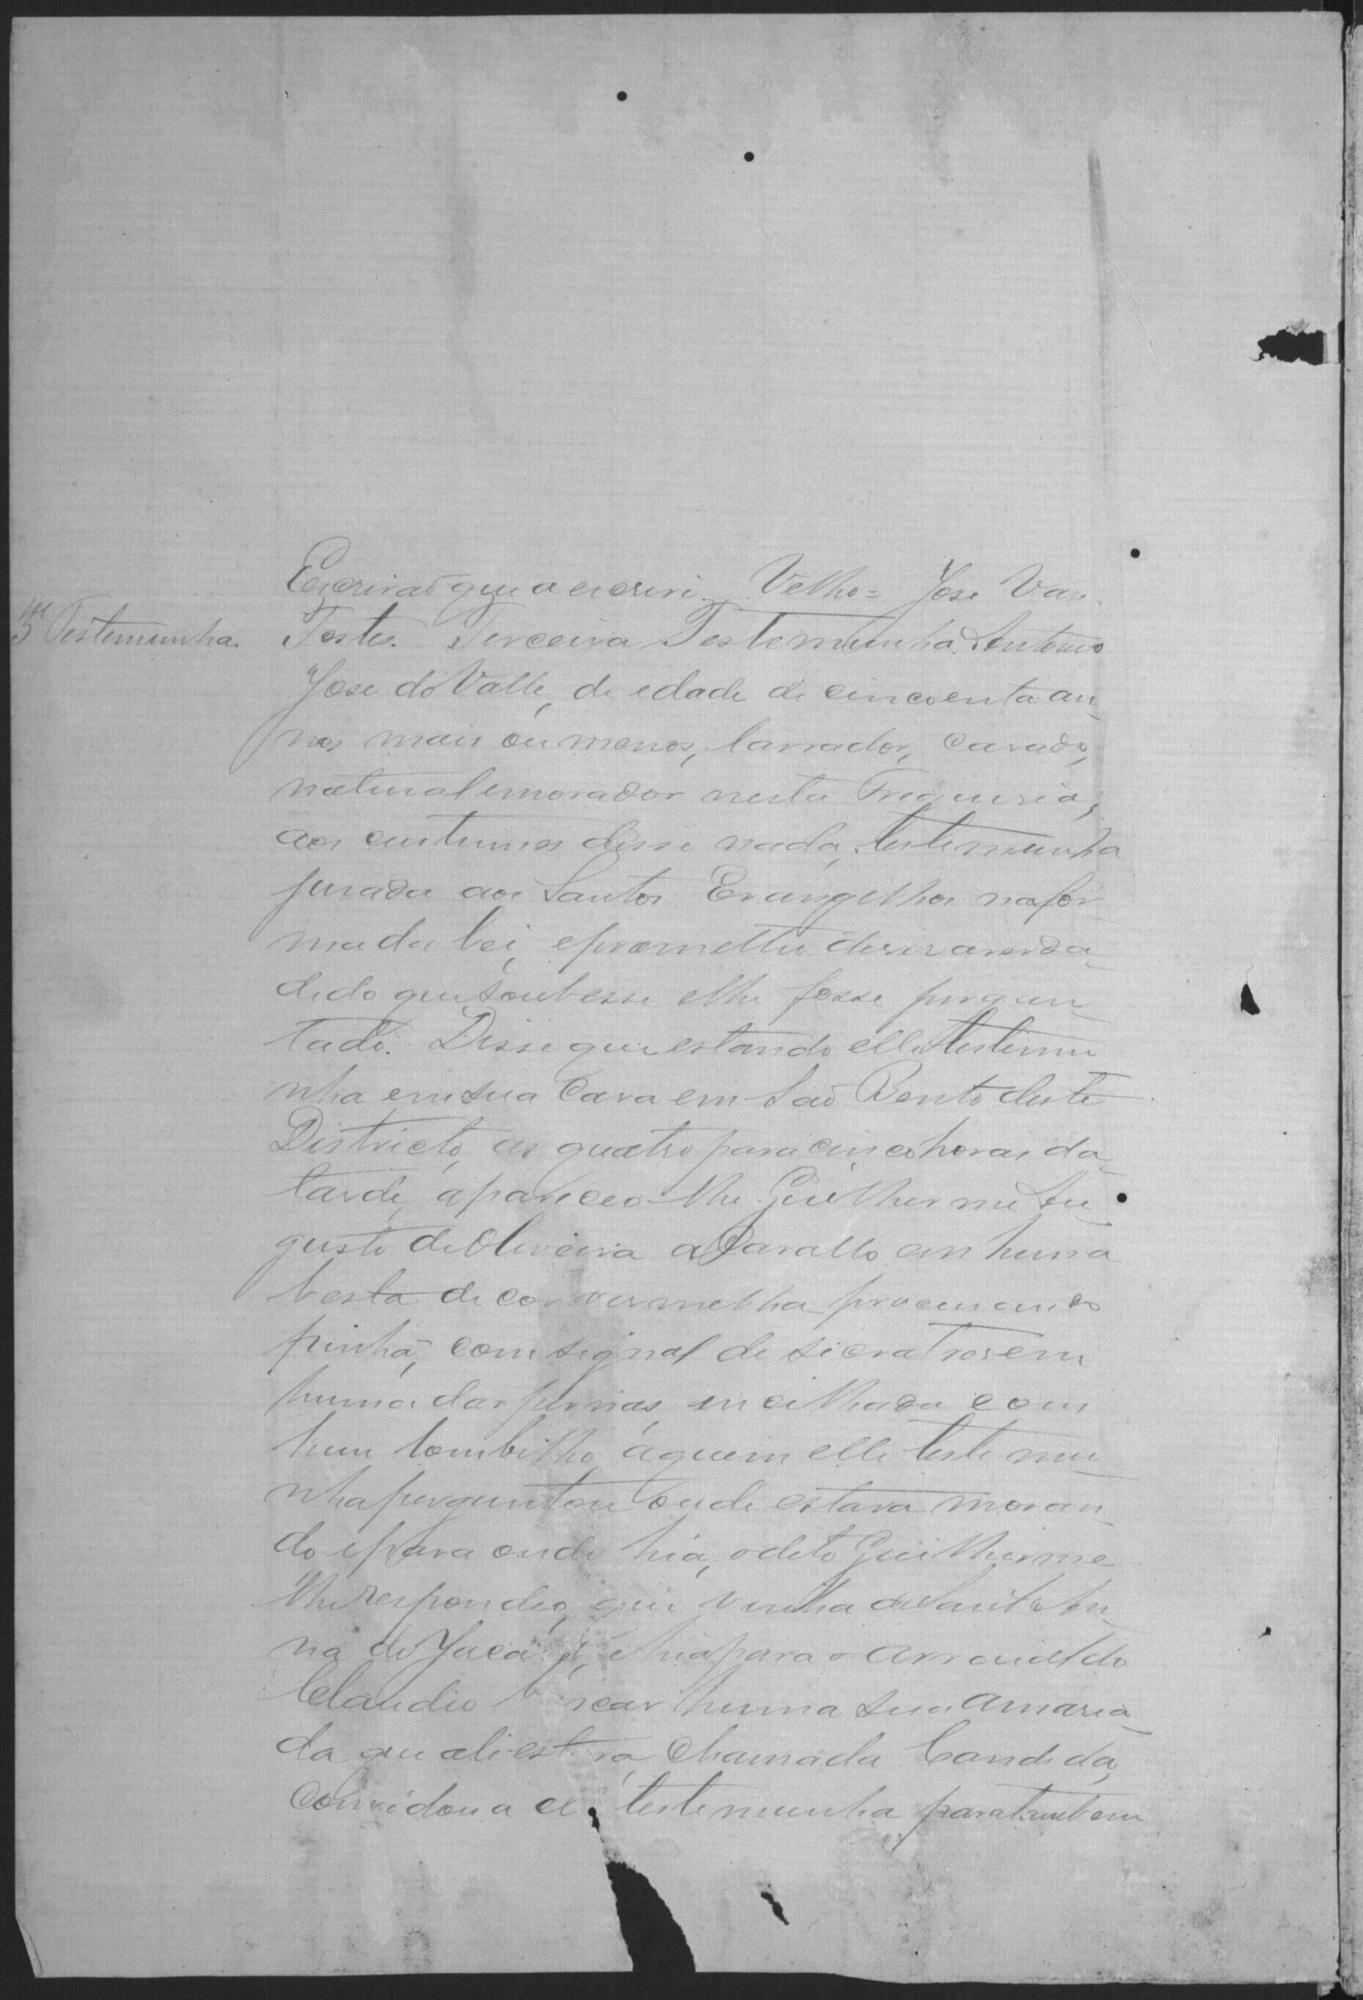 Escrivaõ que a escrevi. Velho = Jose Vaz
3ª Testemunha.
Tostes. Terceira Testemunha. Antonio
Jose do Valle, de edade de cincoenta an-
nos mais ou menos, lavrador, casado,
natural e morador nesta Freguesia,
aos custumes disse nada, testemunha
jurada aos Santos Evangelhos na for-
ma da lei, e prometteu diser a verda-
de do que soubesse e lhe fosse pergun-
tado. Disse que estando elle testemu-
nha em sua Casa em Saõ Bento deste
Districto, as quatro para cinco horas da
tarde, apareceo-lhe Guilherme Au-
gusto de Oliveira a Cavallo em huma
besta de cor vermelha
pinhã, com signal de sicatros em
huma das pernas, incilhada com
hum lombilho, a quem elle testemu-
nha perguntou onde estava moran-
do e para onde hia, o dito Guilherme
lhe respondeo, que vinha de Sant An-
na do e hia para o Arraial do
Claudio buscar huma sua amasia-
da que ali estava, Chamada Candida,
convidou a elle testemunha para tambem